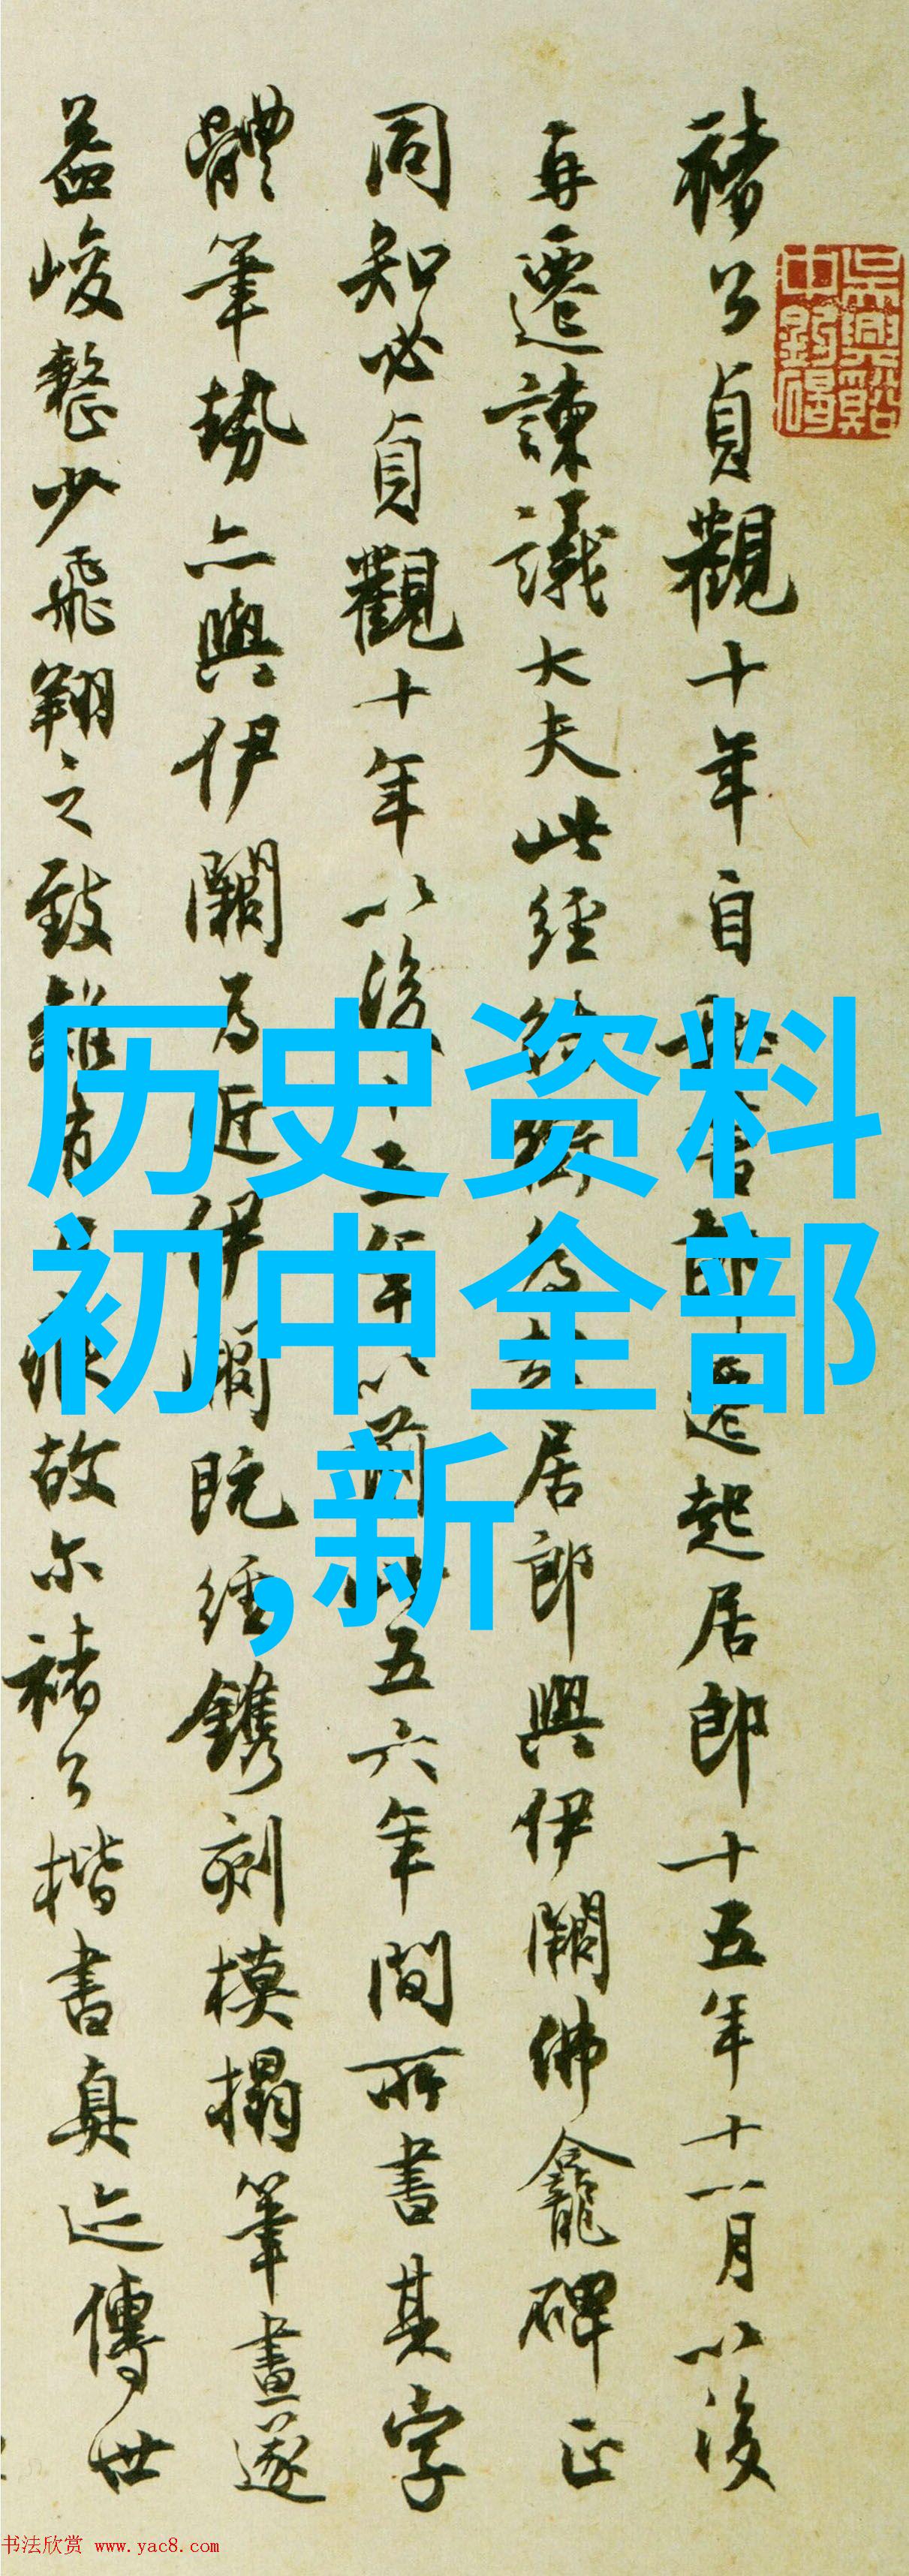 褚公貞觀十年自
起居郎十五年十一月以後
再遷諫議大夫此經
居郎與伊闕佛龕碑正
同知必貞觀十年以後十五年以前
五六年間所書其字
體筆勢亦與伊闕為近伊闕既經鐫刻模搨筆畫遂
益峻整少飛翔之致
故尔褚公楷書真迹傳世
历史资料
初中全部
,新
书法欣赏 www.yac8.com